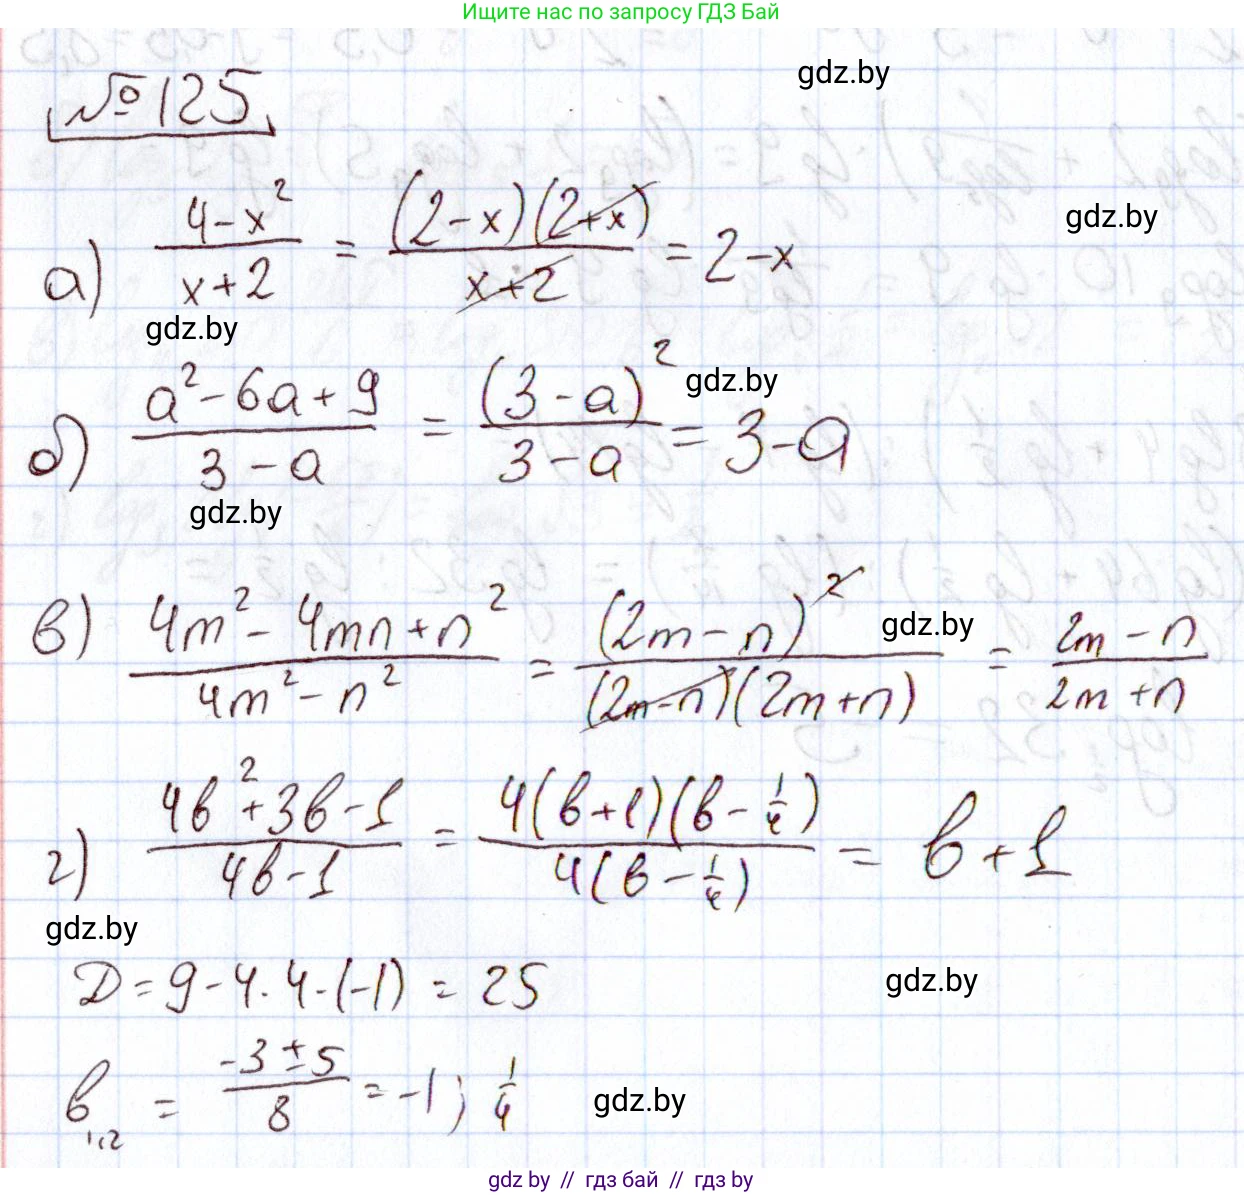 Ищите нас по запросу ГДЗ Бай
№125
gdz.by
а) (4-x²)/(x+2) = ((2-x)(2+x))/(x+2) = 2-x
gdz.by
gdz.by
б) (a²-6a+9)/(3-a) = (3-a)²/(3-a) = 3-a
gdz.by
gdz.by
в) (4m²-4mn+n²)/(4m²-n²) = (2m-n)²/((2m-n)(2m+n)) = (2m-n)/(2m+n)
gdz.by
г) (4b²+3b-1)/(4b-1) = (4(b+1)(b-1/4))/(4(b-1/4)) = b+1
gdz.by
D=9-4·4·(-1) = 25
gdz.by
b1,2 = (-3±5)/8 = -1; 1/4
gdz.by
gdz by // гдз бай // gdz by